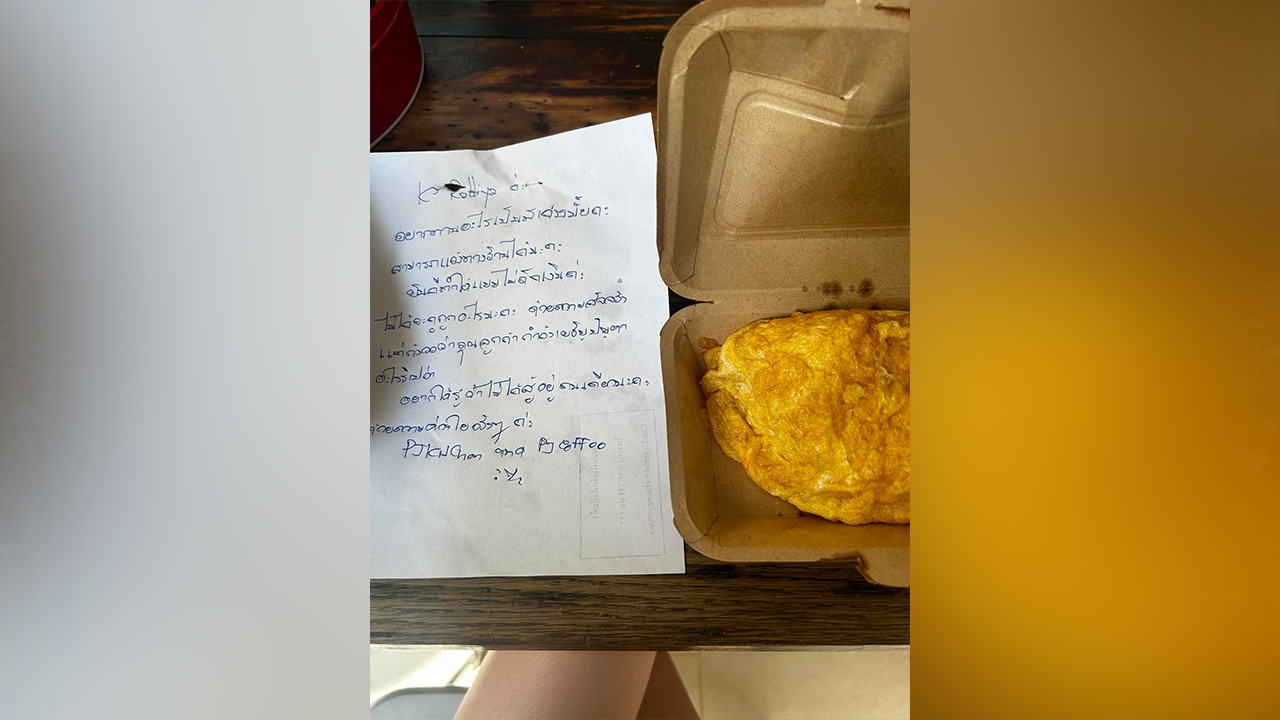 K. Rattiya ค่ะ
อยากทานอะไรเป็นพิเศษมั้ยคะ
สามารถแจ้งทางร้านได้นะคะ
ยินดีทำให้แบบไม่คิดเงินค่ะ
ไม่ได้จะดูถูกอะไรนะคะ ด้วยความสัตย์จริง
แต่ ว่าคุณลูกค้ากำลังเผชิญปัญหา
อะไรรึเปล่า
อยากให้รู้ว่าไม่ได้สู้อยู่คนเดียวนะคะ
ด้วยความห่วงใยจริงๆ ค่ะ
and